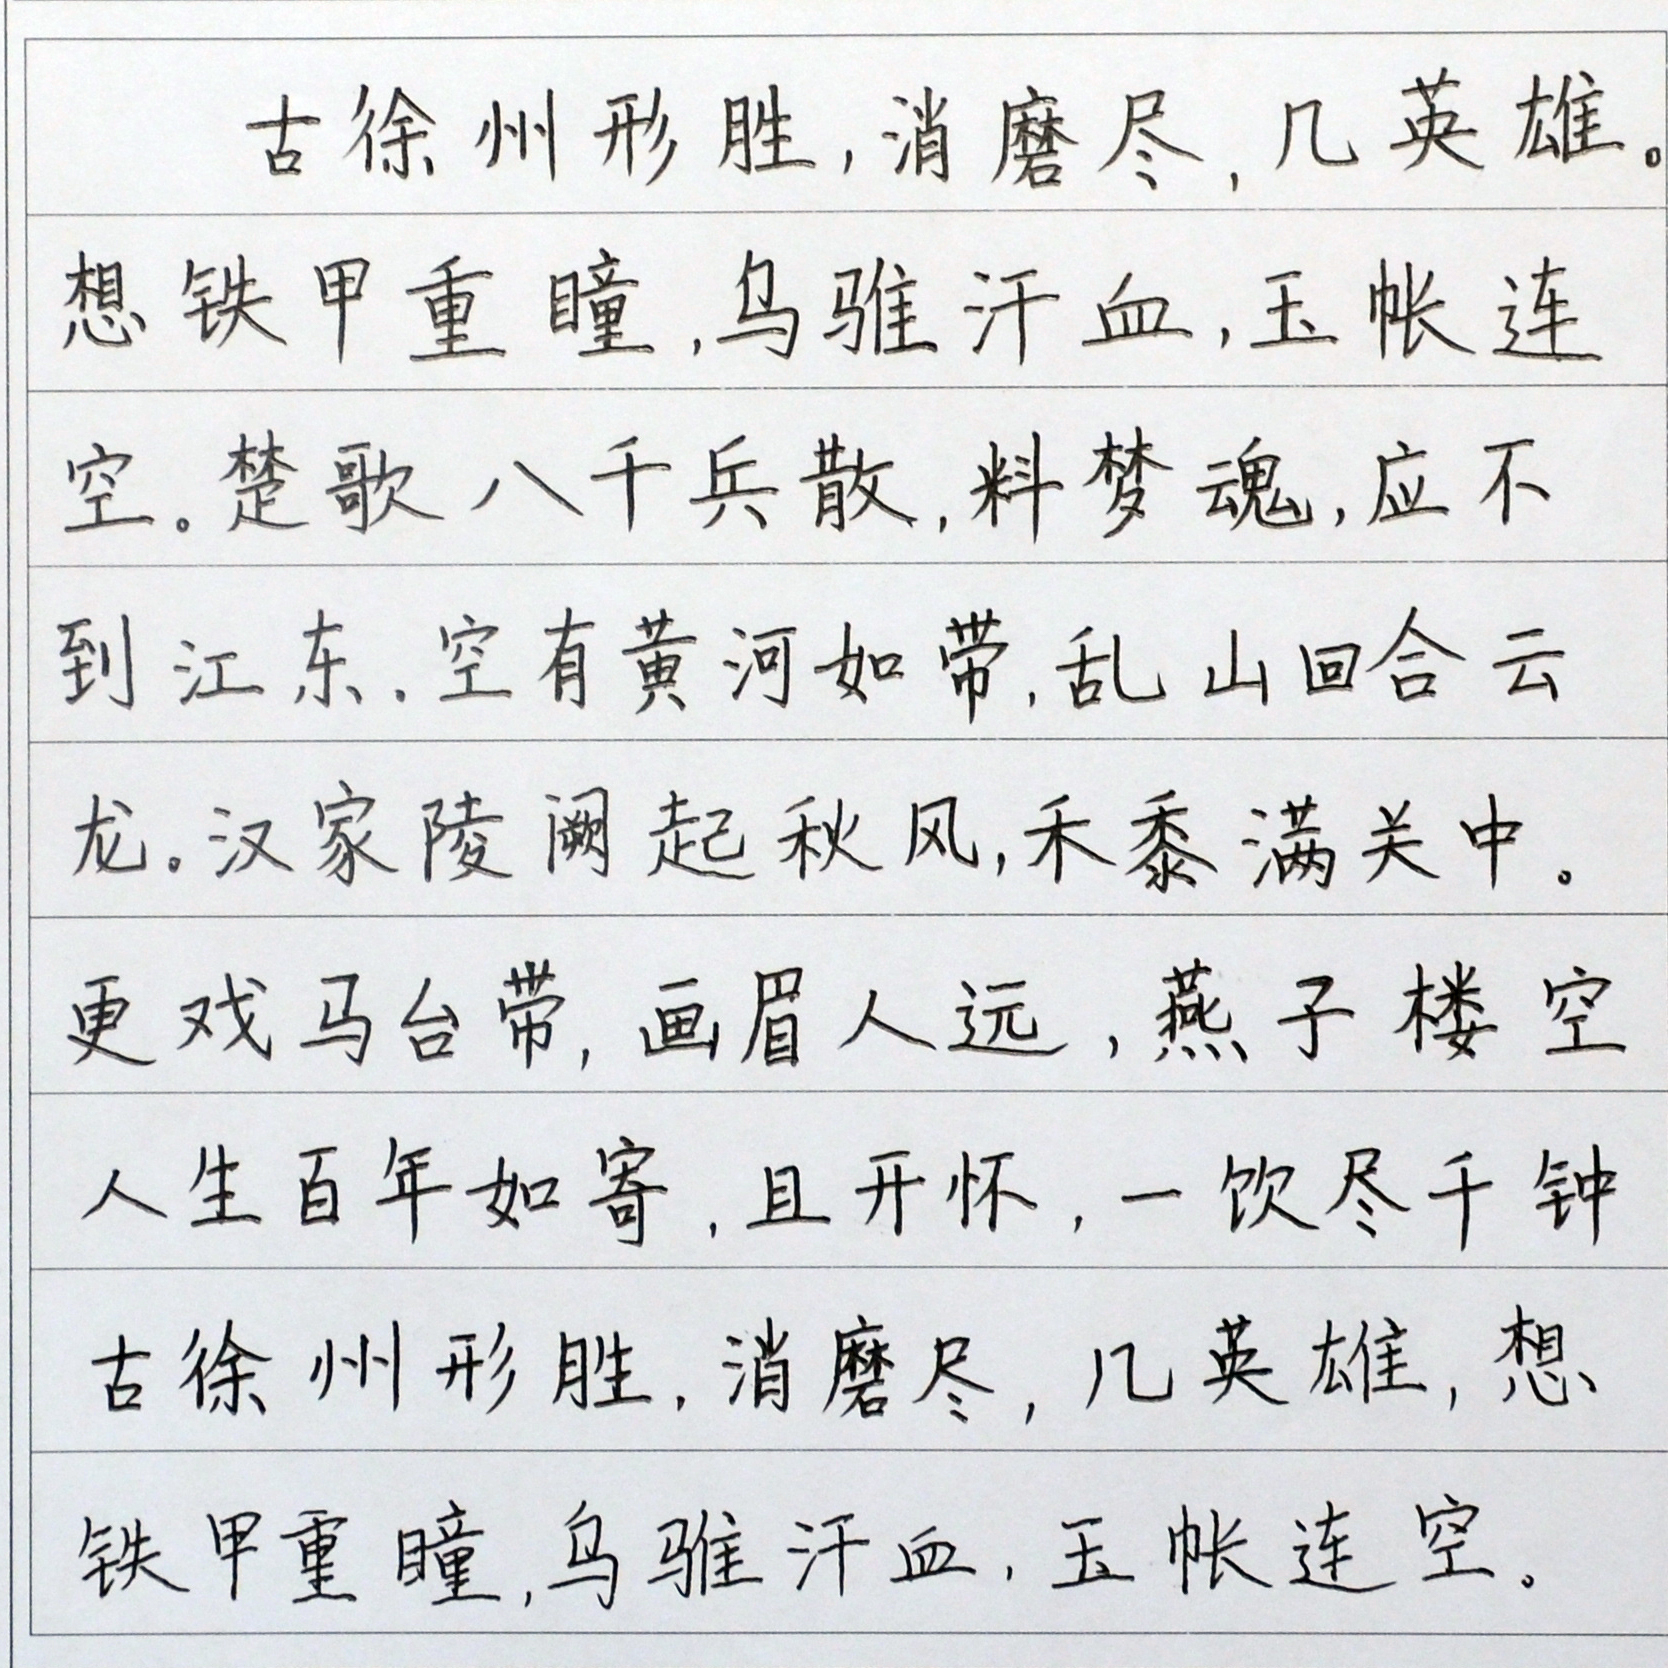 古徐州形胜,消磨尽,几英雄。
想铁甲重瞳,乌骓汗血,玉帐连
空。楚歌八千兵散,料梦魂,应不
到江东.空有黄河如带,乱山回合云
龙。汉家陵阙起秋风,禾黍满关中。
更戏马台带,画眉人远,燕子楼空
人生百年如寄,且开怀,一饮尽千钟
古徐州形胜,消磨尽,几英雄,想
铁甲重瞳,乌骓汗血,玉帐连空。